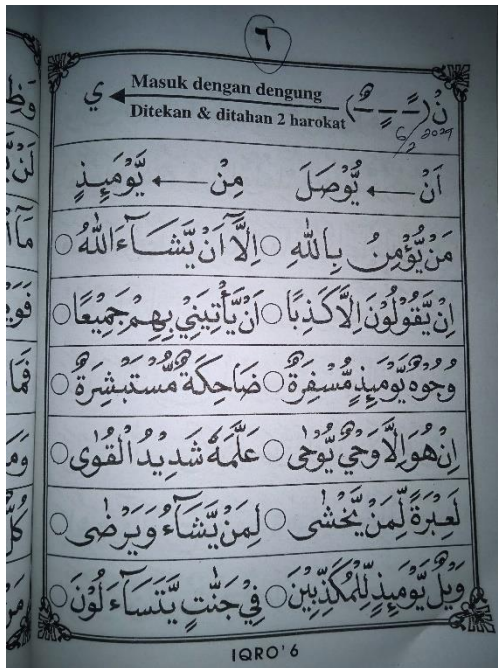 ٦
نْ (ـًـ ـٍـ ـٌـ) Masuk dengan dengung ي
Ditekan & ditahan 2 harokat
6/2 2021
اَنْ يُّوْصَلَ مِنْ يَّوْمَئِذٍ
مَنْ يُّؤْمِنُ بِاللهِ ○ اِلَّآ اَنْ يَّشَآءَ اللهُ ○
اِنْ يَّقُوْلُوْنَ اِلَّا كَذِبًا ○ اَنْ يَّأْتِيَنِيْ بِهِمْ جَمِيْعًا ○
وُجُوْهٌ يَّوْمَئِذٍ مُّسْفِرَةٌ ○ ضَاحِكَةٌ مُّسْتَبْشِرَةٌ ○
اِنْ هُوَ اِلَّا وَحْيٌ يُّوْحٰى ○ عَلَّمَهٗ شَدِيْدُ الْقُوٰى ○
لَعِبْرَةً لِّمَنْ يَّخْشٰى ○ لِمَنْ يَّشَآءُ وَيَرْضٰى ○
وَيْلٌ يَّوْمَئِذٍ لِّلْمُكَذِّبِيْنَ ○ فِيْ جَنّٰتٍ يَّتَسَآءَلُوْنَ ○
IQRO' 6